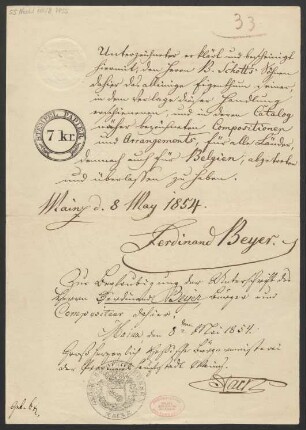 33
Unterzeichneter erklärt und bescheinigt
hiermit, den Herrn B. Schott's Söhnen
dahier das alleinige Eigenthum seiner,
in dem Verlage dieser Handlung
erschienenen, und in deren Catalog
näher bezeichneten Compositionen
und Arrangements, für alle Länder,
demnach auch für Belgien, abgetreten
und überlassen zu haben.
STEMPEL PAPIER
7 kr.
Mainz d. 8 May 1854.
Ferdinand Beyer.
Zur Beglaubigung der Unterschrift des
Herrn Ferdinand Beyer Bürger und
Compositeur dahier.
Mainz, den 8ten Mai 1854.
Großherzoglich Hessische Bürgermeisterei
der